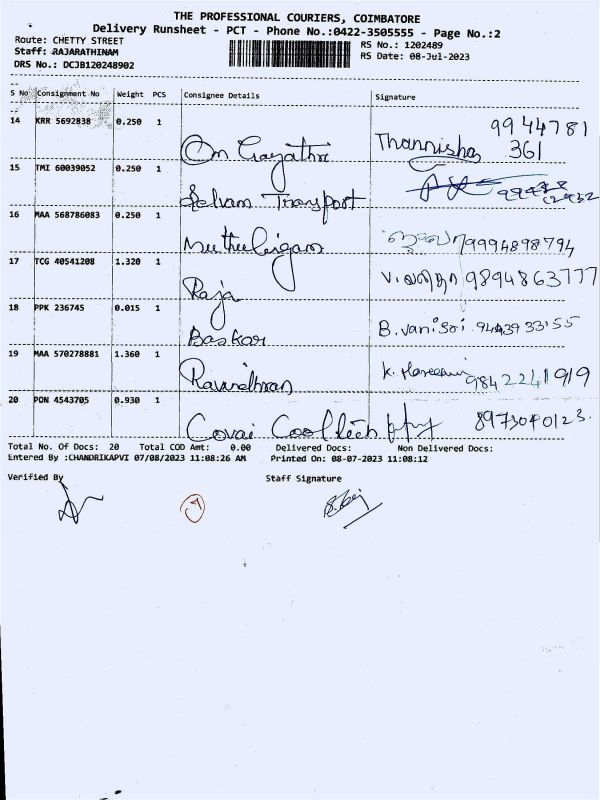 THE PROFESSIONAL COURIERS, COIMBATORE
Delivery Runsheet - PCT - Phone No.:0422-3505555 - Page No.:2
Route: CHETTY STREET
Staff: RAJARATHINAM
DRS No.: DCJB120248902
RS No.: 1202489
RS Date: 08-Jul-2023
S No Consignment No Weight PCS Consignee Details Signature
14 KRR 5692838 0.250 1 Om Gayathri Thannisha 9944781
361
15 TMI 60039052 0.250 1 Selvam Transport
16 MAA 568786083 0.250 1 Muthulingam 9994898794
17 TCG 40541208 1.320 1 Raja V. வனிதா 9894863777
18 PPK 236745 0.015 1 Baskar B. vani Sri 9443933155
19 MAA 570278881 1.360 1 Ravindhran K. 9842241919
20 PON 4543705 0.930 1 Covai Cooltech 8973040123
Total No. Of Docs: 20 Total COD Amt: 0.00 Delivered Docs: Non Delivered Docs:
Entered By :CHANDRIKAPVI 07/08/2023 11:08:26 AM Printed On: 08-07-2023 11:08:12
Verified By Staff Signature